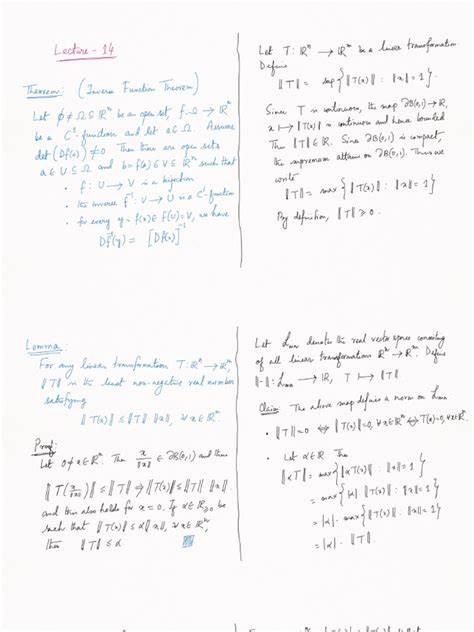 Lecture - 14
Theorem: (Inverse Function Theorem)
Let ϕ ≠ Ω ⊆ ℝⁿ be an open set, f: Ω → ℝⁿ
be a C¹-function and let a ∈ Ω. Assume
det (Df(a)) ≠ 0. Then there are open sets
a ∈ U ⊆ Ω and b = f(a) ∈ V ⊆ ℝⁿ such that
• f: U → V is a bijection
• the inverse f⁻¹: V → U is a C¹-function
• for every y = f(x) ∈ f(U) = V, we have
Df⁻¹(y) = [Df(x)]⁻¹
Let T: ℝⁿ → ℝᵐ be a linear transformation.
Define
‖T‖ = sup{‖T(x)‖ : ‖x‖ = 1}.
Since T is continuous, the map ∂B(0,1) → ℝ,
x ↦ ‖T(x)‖ is continuous and hence bounded
Thus ‖T‖ ∈ ℝ. Since ∂B(0,1) is compact,
the supremum attains on ∂B(0,1). Thus we
write
‖T‖ = max{‖T(x)‖ : ‖x‖ = 1}
By definition, ‖T‖ ≥ 0.
Lemma:
For any linear transformation T: ℝⁿ → ℝᵐ,
‖T‖ is the least non-negative real number
satisfying
‖T(x)‖ ≤ ‖T‖ ‖x‖, ∀ x ∈ ℝⁿ.
Proof:
Let 0 ≠ x ∈ ℝⁿ. Then x/‖x‖ ∈ ∂B(0,1) and thus
‖T(x/‖x‖)‖ ≤ ‖T‖ ⇒ ‖T(x)‖ ≤ ‖T‖ ‖x‖,
and this also holds for x = 0. If α ∈ ℝ≥0 be
such that ‖T(x)‖ ≤ α‖x‖, ∀ x ∈ ℝⁿ,
then ‖T‖ ≤ α
Let Lₘₙ denote the real vector space consisting
of all linear transformations ℝⁿ → ℝᵐ. Define
‖·‖: Lₘₙ → ℝ, T ↦ ‖T‖
Claim: The above map defines a norm on Lₘₙ
• ‖T‖ = 0 ⇔ ‖T(x)‖ = 0, ∀ x ∈ ℝⁿ ⇔ T(x) = 0, ∀ x ∈ ℝⁿ.
• Let α ∈ ℝ. Then
‖αT‖ = max{‖αT(x)‖ : ‖x‖ = 1}
= max{|α| ‖T(x)‖ : ‖x‖ = 1}
= |α| · max{‖T(x)‖ : ‖x‖ = 1}
= |α| · ‖T‖.